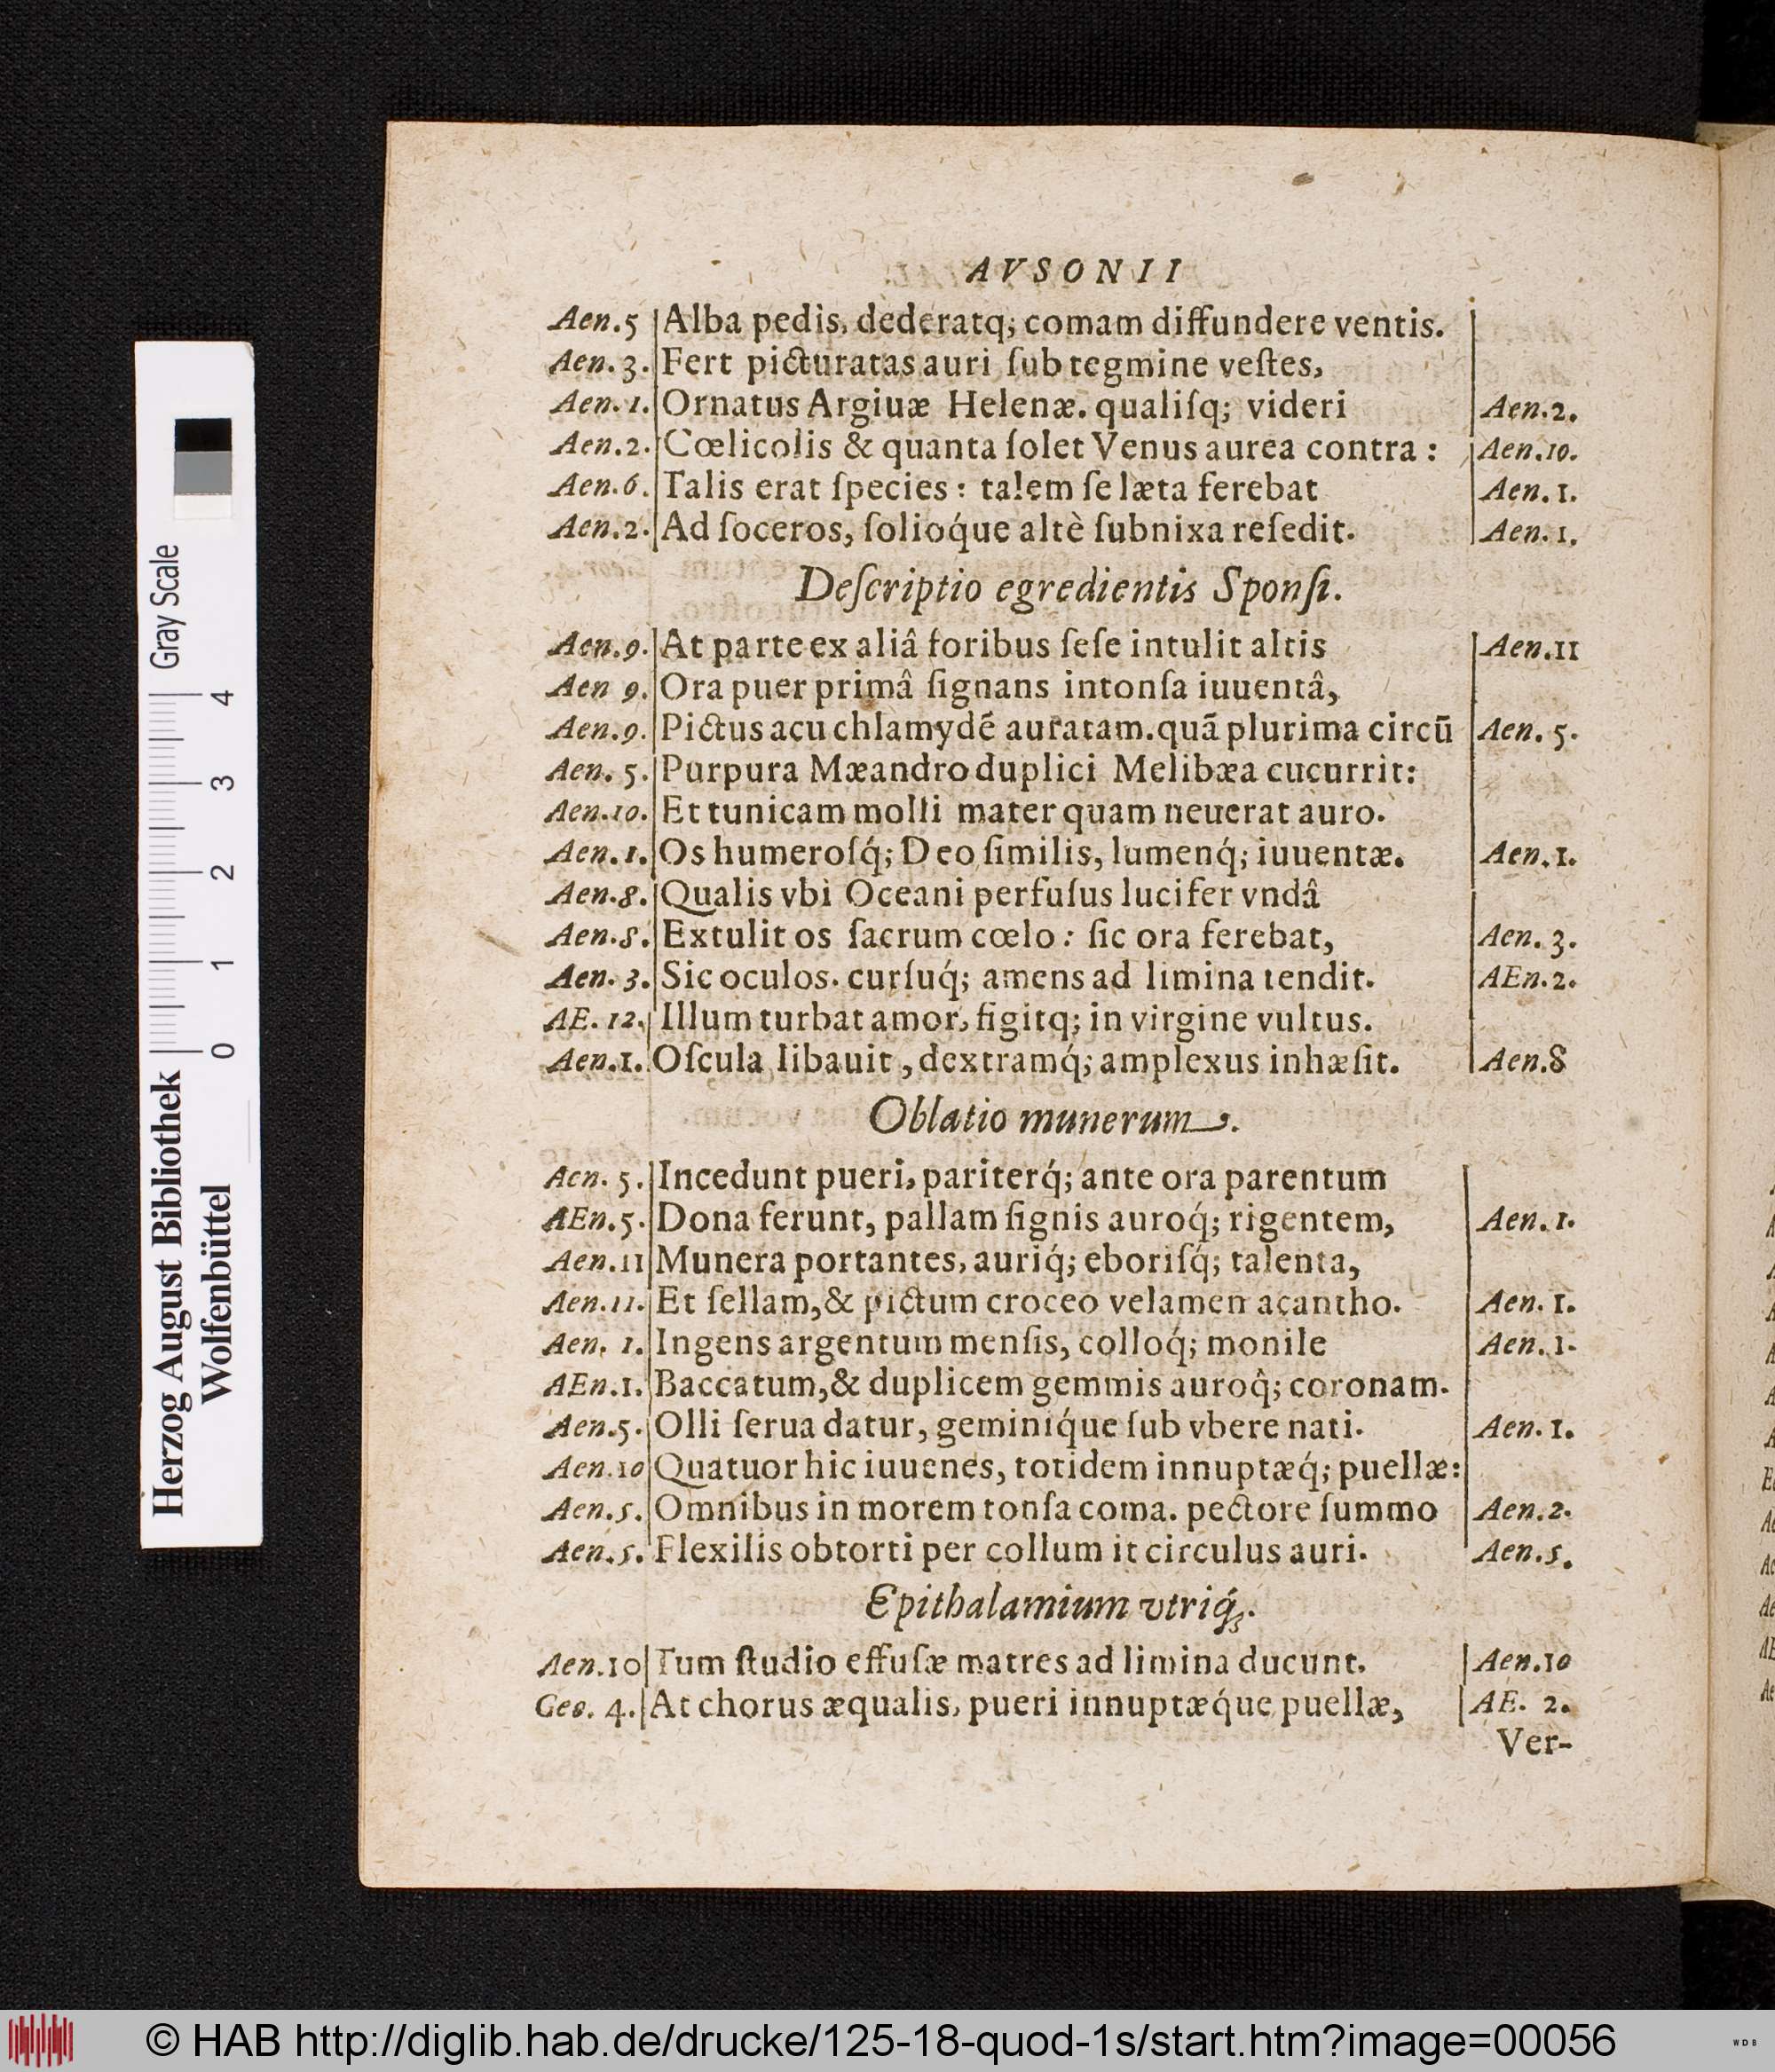 AVSONII
Aen.5 Alba pedis, dederatq; comam diffundere ventis.
Aen. 3. Fert picturatas auri ſub tegmine veſtes,
Aen. 1. Ornatus Argiuæ Helenæ. qualiſq; videri Aen.2.
Aen.2. Cœlicolis & quanta ſolet Venus aurea contra : Aen.10.
Aen.6. Talis erat ſpecies : talem ſe læta ferebat Aen. 1.
Aen.2. Ad ſoceros, ſolioq́ue altè ſubnixa reſedit. Aen. 1.
Deſcriptio egredientis Sponſi.
Aen.9. At parte ex aliâ foribus ſeſe intulit altis Aen.11
Aen 9. Ora puer primâ ſignans intonſa iuuentâ,
Aen.9. Pictus acu chlamydẽ auratam.quã plurima circũ Aen. 5.
Aen. 5. Purpura Mæandro duplici Melibæa cucurrit:
Aen.10. Et tunicam molli mater quam neuerat auro.
Aen. 1. Os humeroſq́; Deo ſimilis, lumenq́; iuuentæ. Aen.1.
Aen.8. Qualis vbi Oceani perfuſus lucifer vndâ
Aen.8. Extulit os ſacrum cœlo : ſic ora ferebat, Aen. 3.
Aen. 3. Sic oculos. curſuq́; amens ad limina tendit. AEn.2.
AE. 12. Illum turbat amor, figitq; in virgine vultus.
Aen.1. Oſcula libauit, dextramq́; amplexus inhæſit. Aen.8
Oblatio munerum.
Aen. 5. Incedunt pueri, pariterq́; ante ora parentum
AEn.5. Dona ferunt, pallam ſignis auroq́; rigentem, Aen. 1.
Aen.11 Munera portantes, auriq́; eboriſq́; talenta,
Aen.11. Et ſellam,& pictum croceo velamen acantho. Aen. 1.
Aen. 1. Ingens argentum menſis, colloq́; monile Aen. 1.
AEn.1. Baccatum,& duplicem gemmis auroq̀; coronam.
Aen.5. Olli ſerua datur, geminiq́ue ſub vbere nati. Aen. 1.
Aen.10 Quatuor hic iuuenes, totidem innuptæq́; puellæ:
Aen.5. Omnibus in morem tonſa coma. pectore ſummo Aen.2.
Aen.5. Flexilis obtorti per collum it circulus auri. Aen.5.
Epithalamium vtriq́;.
Aen.10 Tum ſtudio effuſæ matres ad limina ducunt. Aen.10
Geo. 4. At chorus æqualis, pueri innuptæq́ue puellæ, AE. 2.
Ver-
Gray Scale
0 1 2 3 4
Herzog August Bibliothek
Wolfenbüttel
© HAB http://diglib.hab.de/drucke/125-18-quod-1s/start.htm?image=00056
WDB